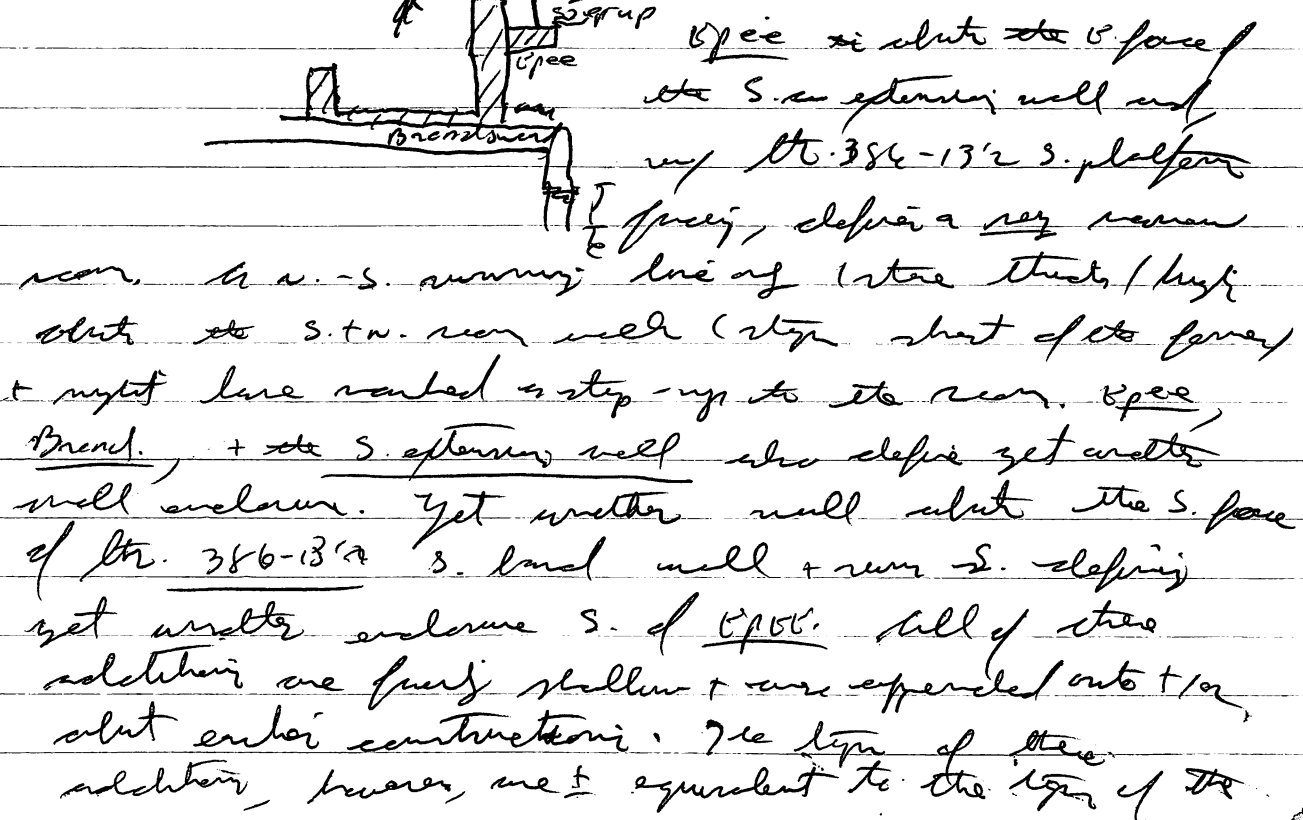 step-up
Epee
Broadsword
Epee abuts the E. face of
the S. extension wall and,
w/ Str. 386-13'2 S. platform
facing, defines a very narrow
room. A N.-S. running line of 1 stone thick/high
abuts the S. + N. room walls (stops short of the former)
+ might have marked a step-up to the room. Epee,
Broad., + the S. extension wall also define yet another
small enclosure. Yet another wall abuts the S. face
of Str. 386-13'2 S. basal wall + runs S. defining
yet another enclosure S. of EPEE. All of these
additions are fairly shallow + were appended onto +/or
abut earlier constructions. The tops of these
additions, however, are ± equivalent to the tops of the